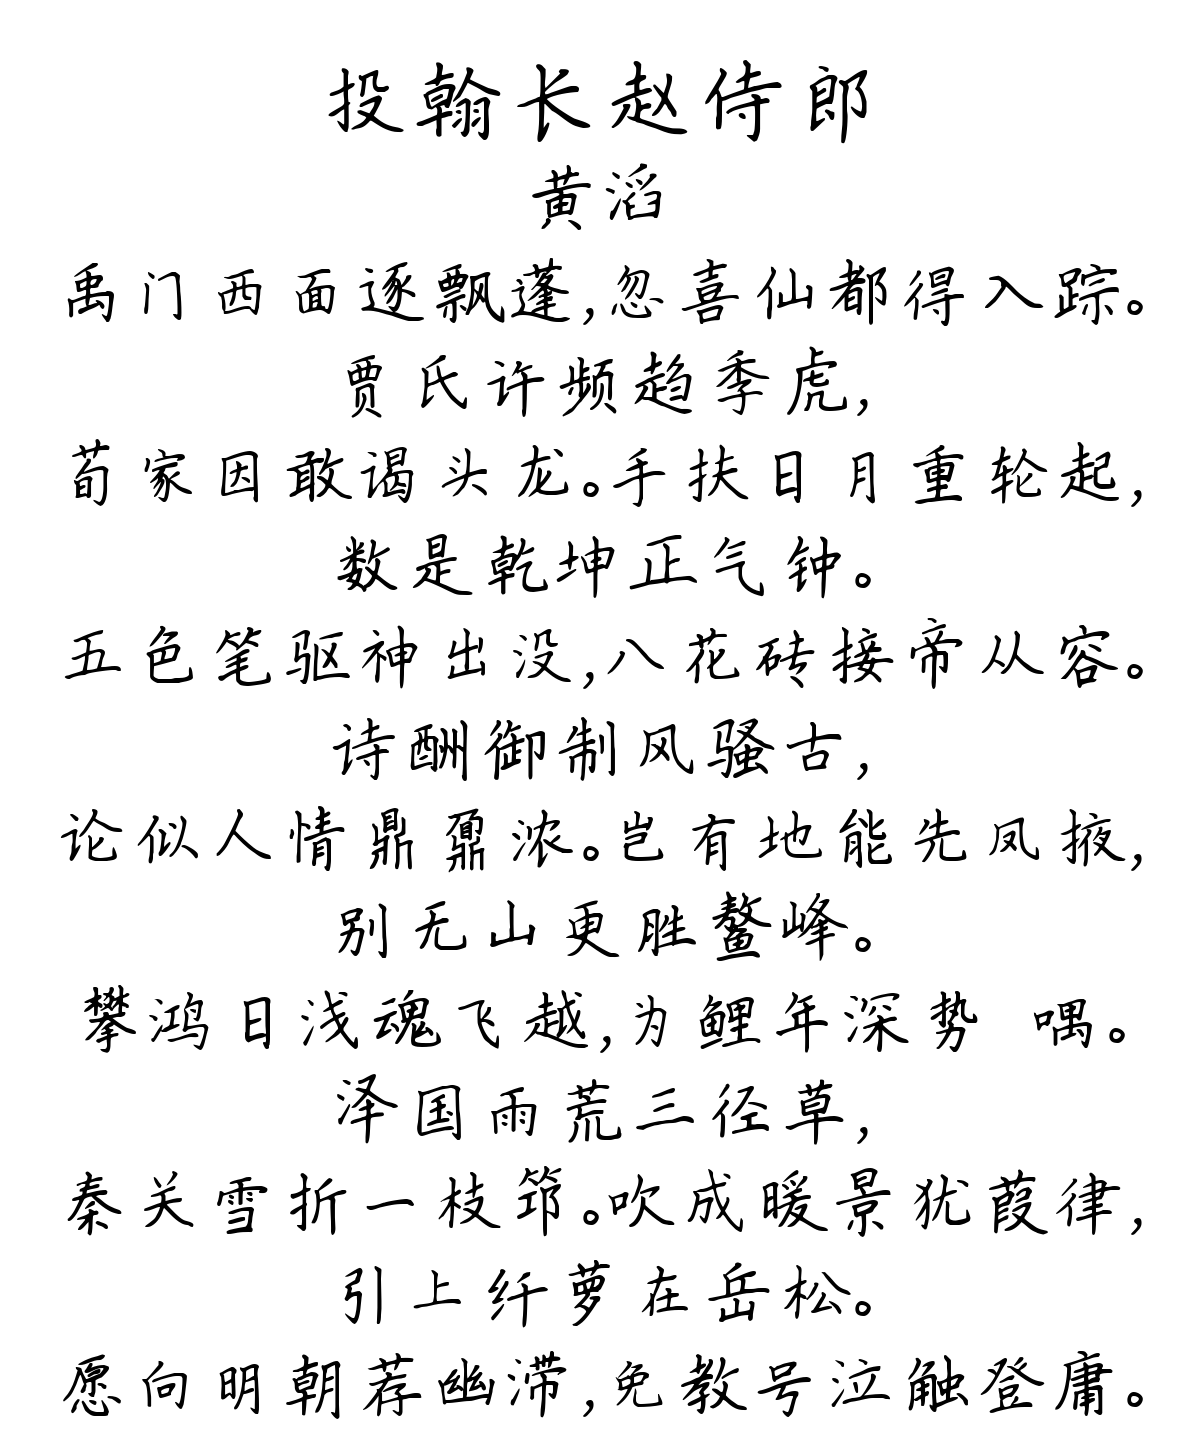 投翰长赵侍郎
黄滔
禹门西面逐飘蓬,忽喜仙都得入踪。
贾氏许频趋季虎,
荀家因敢谒头龙。手扶日月重轮起,
数是乾坤正气钟。
五色笔驱神出没,八花砖接帝从容。
诗酬御制风骚古,
论似人情鼎鼐浓。岂有地能先凤掖,
别无山更胜鳌峰。
攀鸿日浅魂飞越,为鲤年深势 喁。
泽国雨荒三径草,
秦关雪折一枝筇。吹成暖景犹葭律,
引上纤萝在岳松。
愿向明朝荐幽滞,免教号泣触登庸。